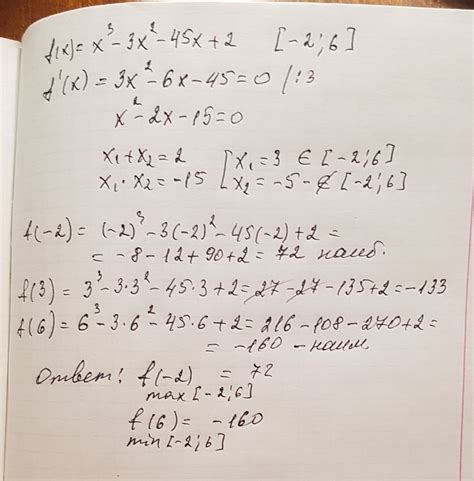 f(x) = x³ - 3x² - 45x + 2 [-2; 6]
f'(x) = 3x² - 6x - 45 = 0 /:3
x² - 2x - 15 = 0
x₁ + x₂ = 2 [ x₁ = 3 ∈ [-2; 6]
x₁ · x₂ = -15 [ x₂ = -5 - ∉ [-2; 6]
f(-2) = (-2)³ - 3(-2)² - 45(-2) + 2 =
= -8 - 12 + 90 + 2 = 72 наиб.
f(3) = 3³ - 3·3² - 45·3 + 2 = 27 - 27 - 135 + 2 = -133
f(6) = 6³ - 3·6² - 45·6 + 2 = 216 - 108 - 270 + 2 =
= -160 - наим
Ответ: f(-2) = 72
max [-2; 6]
f(6) = -160
min [-2; 6]